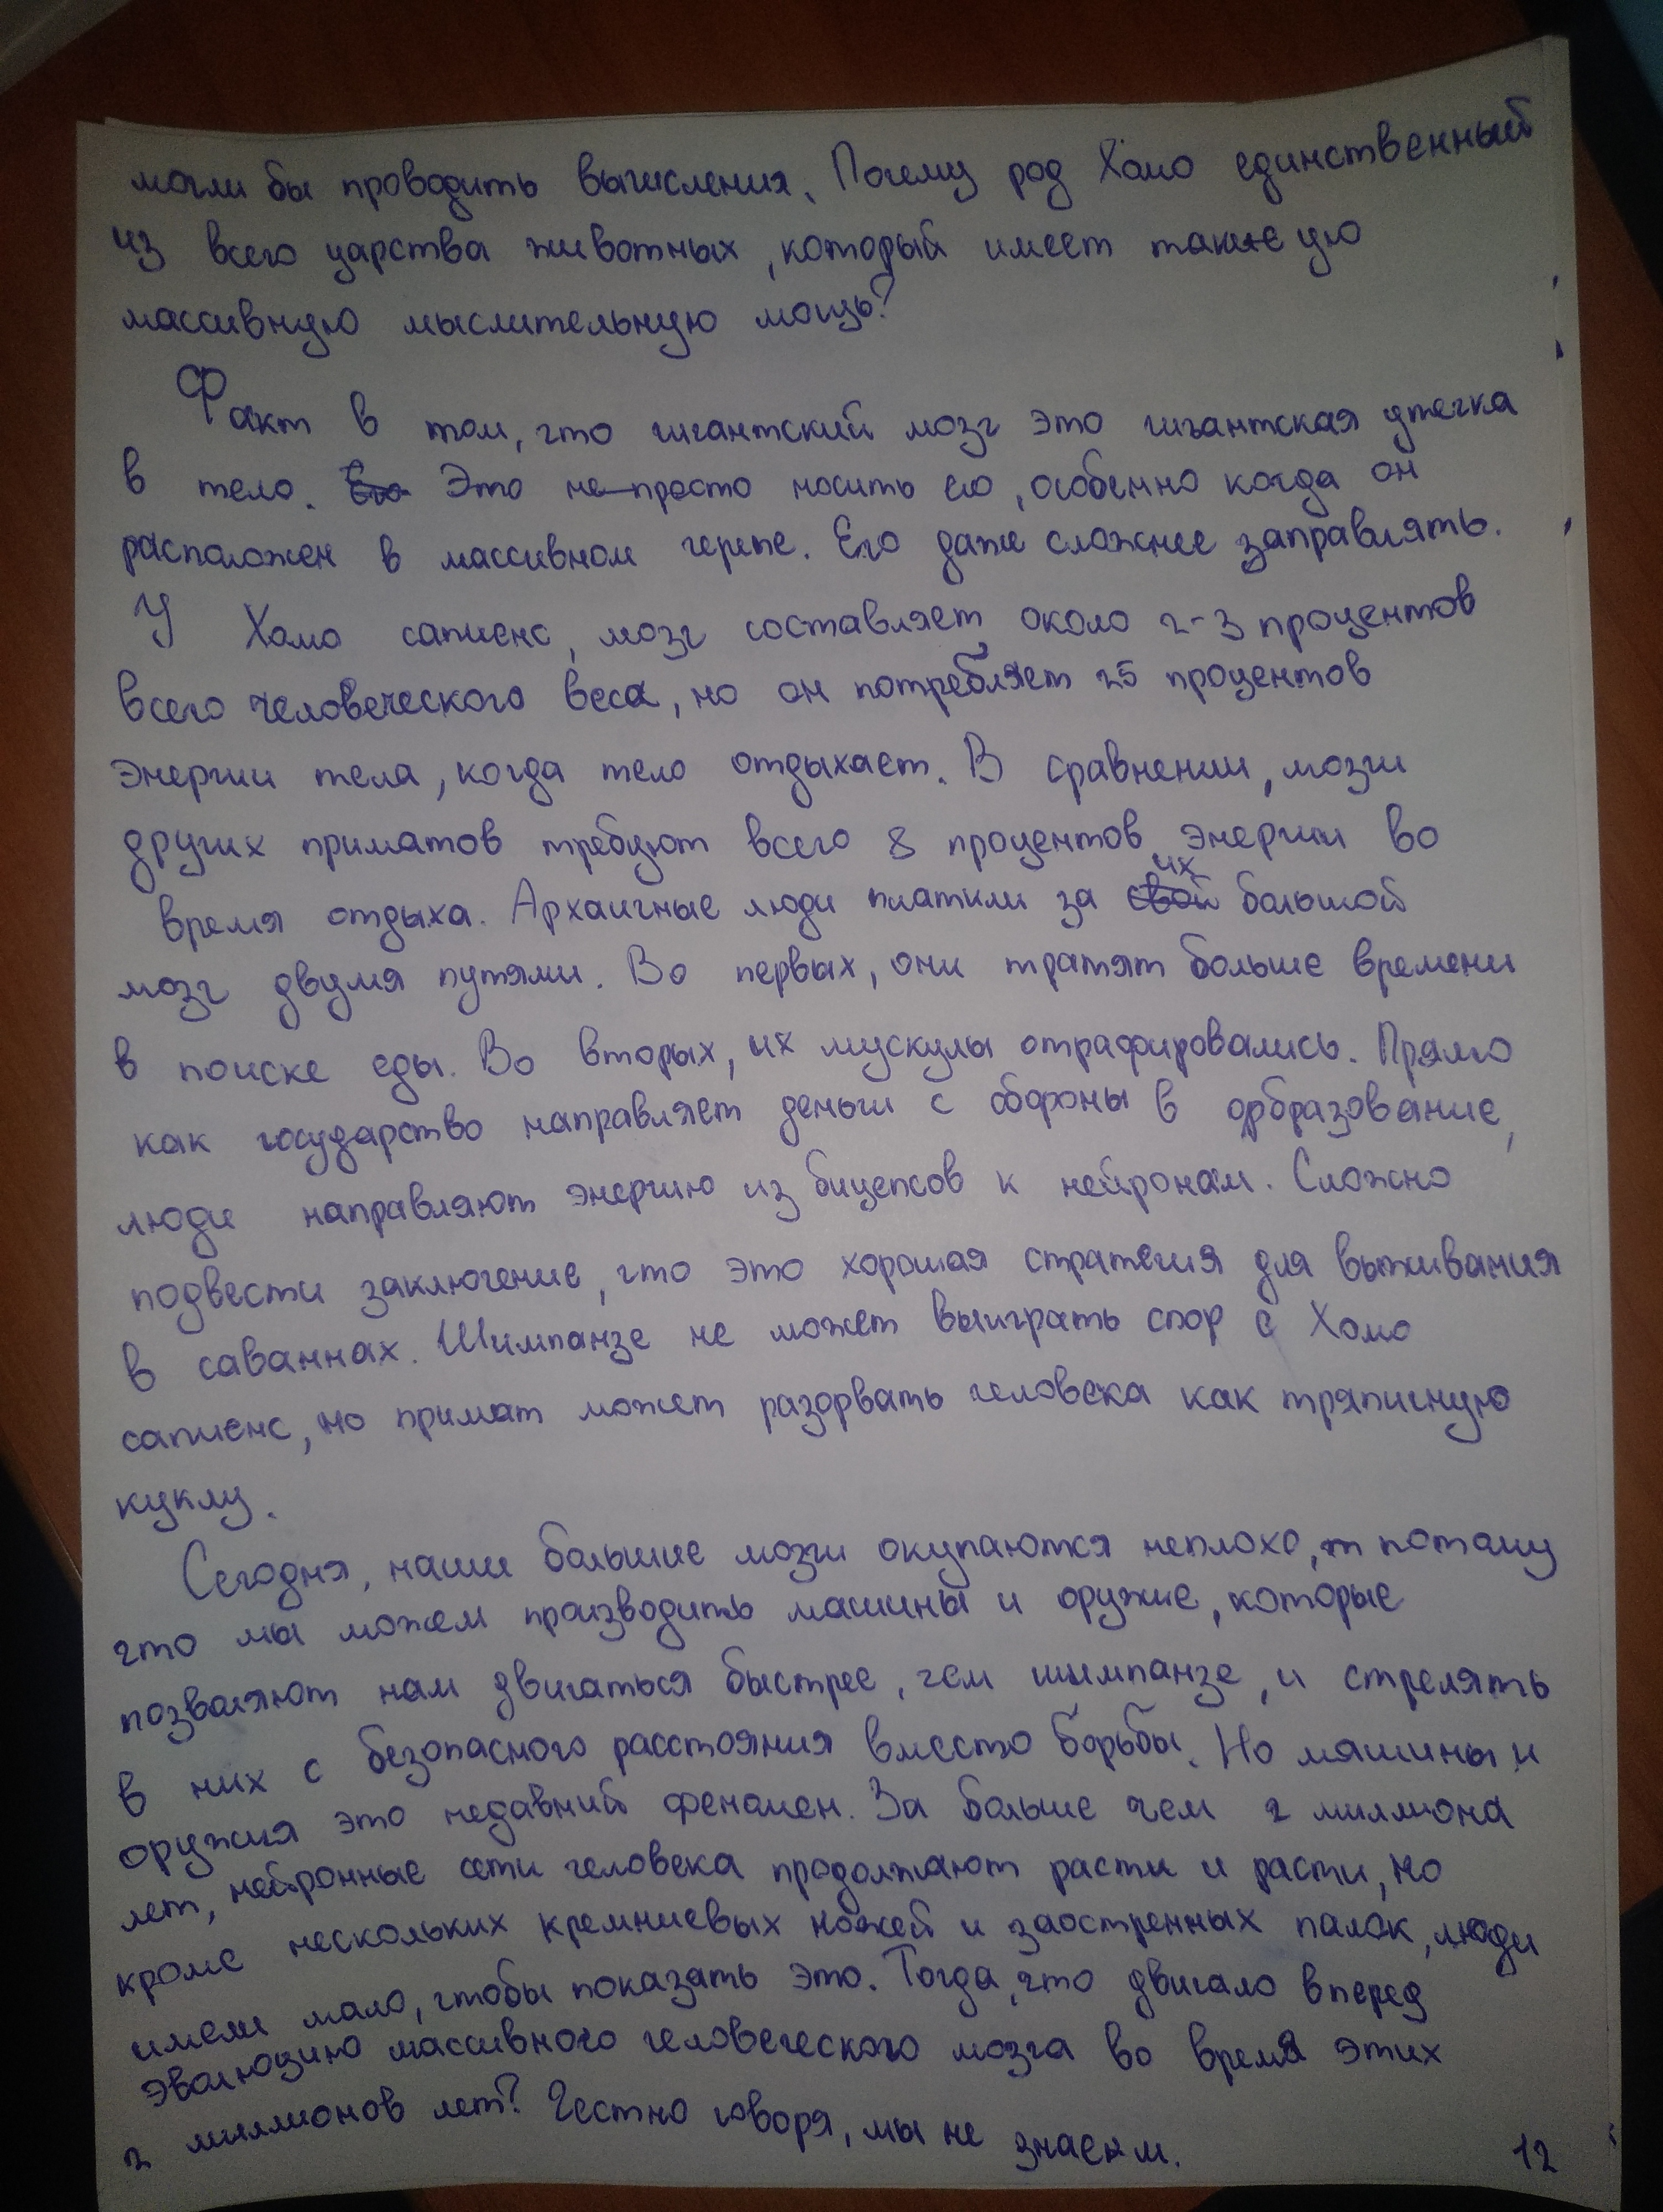 могли бы проводить вычисления. Почему род Хомо единственный
из всего царства животных, который имеет такую
массивную мыслительную мощь?
Факт в том, что гигантский мозг это гигантская утечка
в тело. Его Это не просто носить его, особенно когда он
расположен в массивном черепе. Его даже сложнее заправлять.
У Хомо сапиенс, мозг составляет около 2-3 процентов
всего человеческого веса, но он потребляет 25 процентов
энергии тела, когда тело отдыхает. В сравнении, мозги
других приматов требуют всего 8 процентов энергии во
время отдыха. Архаичные люди платили за свой их большой
мозг двумя путями. Во первых, они тратят больше времени
в поиске еды. Во вторых, их мускулы отрафировались. Прямо
как государство направляет деньги с обороны в образование,
люди направляют энергию из бицепсов к нейронам. Сложно
подвести заключение, что это хорошая стратегия для выживания
в саваннах. Шимпанзе не может выиграть спор с Хомо
сапиенс, но примат может разорвать человека как тряпичную
куклу.
Сегодня, наши большие мозги окупаются неплохо, т потому
что мы можем производить машины и оружие, которые
позволяют нам двигаться быстрее, чем шимпанзе, и стрелять
в них с безопасного расстояния вместо борьбы. Но машины и
оружия это недавний феномен. За больше чем 2 миллиона
лет, нейронные сети человека продолжают расти и расти, но
кроме нескольких кремниевых ножей и заостренных палок, люди
имели мало, чтобы показать это. Тогда, что двигало вперед
эволюцию массивного человеческого мозга во время этих
2 миллионов лет? Честно говоря, мы не знаем.
12